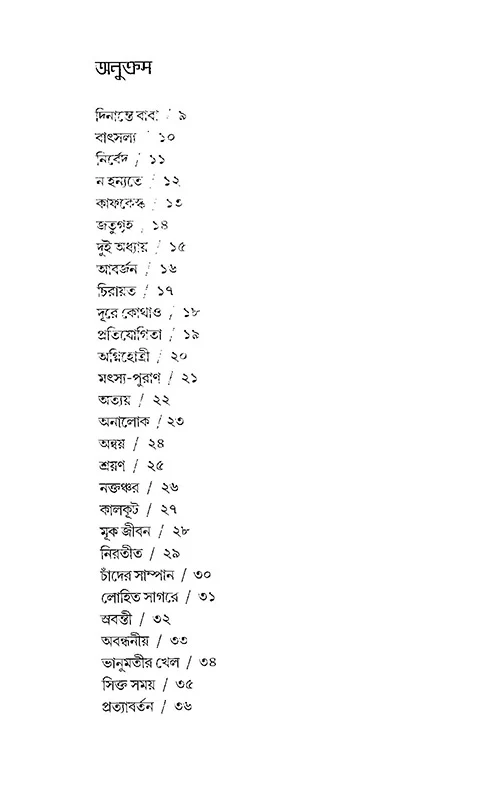 অনুক্রম
দিনান্তে বাবা / ৯
বাৎসল্য / ১০
নির্বেদ / ১১
ন হন্যতে / ১২
কাফকেস্ক / ১৩
জতুগৃহ / ১৪
দুই অধ্যায় / ১৫
আবর্জন / ১৬
চিরায়ত / ১৭
দূরে কোথাও / ১৮
প্রতিযোগিতা / ১৯
অগ্নিহোত্রী / ২০
মৎস্য-পুরাণ / ২১
অত্যয় / ২২
অনালোক / ২৩
অন্বয় / ২৪
শ্রয়ণ / ২৫
নক্তঞ্চর / ২৬
কালকূট / ২৭
মূক জীবন / ২৮
নিরতীত / ২৯
চাঁদের সাম্পান / ৩০
লোহিত সাগরে / ৩১
স্রবন্তী / ৩২
অবন্ধনীয় / ৩৩
ভানুমতীর খেল / ৩৪
সিক্ত সময় / ৩৫
প্রত্যাবর্তন / ৩৬